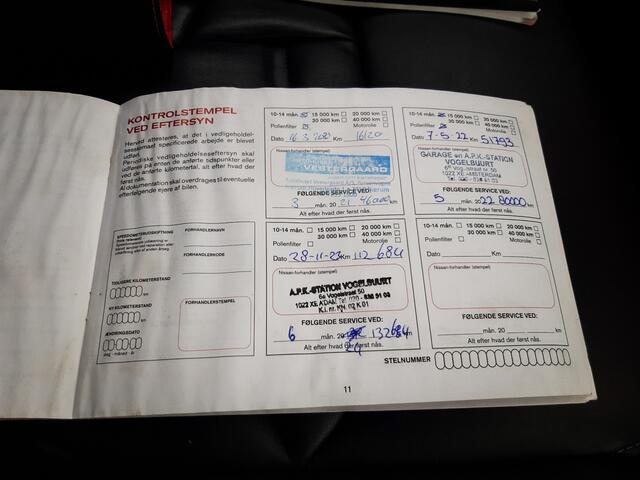 KONTROLSTEMPEL
VED EFTERSYN
Herved attesteres, at det i vedligeholdel-
sesskemaet specificerede arbejde er blevet
udført.
Periodiske vedligeholdelseseftersyn skal
udføres på enten de anførte tidspunkter eller
ved de anførte kilometertal, alt efter hvad der
først nås.
Al dokumentation skal overdrages til eventuelle
efterfølgende ejere af bilen.
SPEEDOMETERUDSKIFTNING
FORHANDLERNAVN
FORHANDLERKODE
TIDLIGERE KILOMETERSTAND
km
NY KILOMETERSTAND
km
ÆNDRINGSDATO
dag - måned - år
FORHANDLERSTEMPEL
10-14 mån. 15 000 km 20 000 km
30 000 km 40 000 km
Pollenfilter Motorolie
Dato 16.3.2021 Km 16120
VESTERGAARD
FØLGENDE SERVICE VED:
3 mån. 20 21 46000 km
Alt efter hvad der først nås.
10-14 mån. 15 000 km 20 000 km
30 000 km 40 000 km
Pollenfilter Motorolie
Dato 7-5-22 Km 51793
GARAGE en A.P.K.-STATION
VOGELBUURT
6e Vogelstraat nr. 50
1022 XE AMSTERDAM
FØLGENDE SERVICE VED:
5 mån. 20 22 80000 km
Alt efter hvad der først nås.
10-14 mån. 15 000 km 20 000 km
30 000 km 40 000 km
Pollenfilter Motorolie
Dato 28-11-23 Km 112684
Nissan-forhandler (stempel)
A.P.K.-STATION VOGELBUURT
6e Vogelstraat 50
1022 XE A'DAM Tel. 020
K.I. nr. KN. 02 K 01
FØLGENDE SERVICE VED:
6 mån. 20 24 132684 km
Alt efter hvad der først nås.
10-14 mån. 15 000 km 20 000 km
30 000 km 40 000 km
Pollenfilter Motorolie
Dato Km
Nissan-forhandler (stempel)
FØLGENDE SERVICE VED:
mån. 20 km
Alt efter hvad der først nås.
STELNUMMER
11